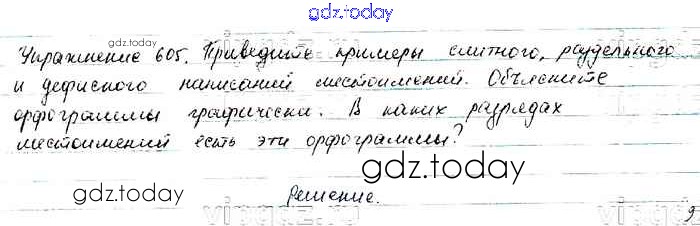 gdz.today
Упражнение 605. Приведите примеры слитного, раздельного
gdz.today
и дефисного написаний местоимений. Объясните
орфограммы графически. В каких разрядах
местоимений есть эти орфограммы?
gdz.today
gdz.today
Решение.